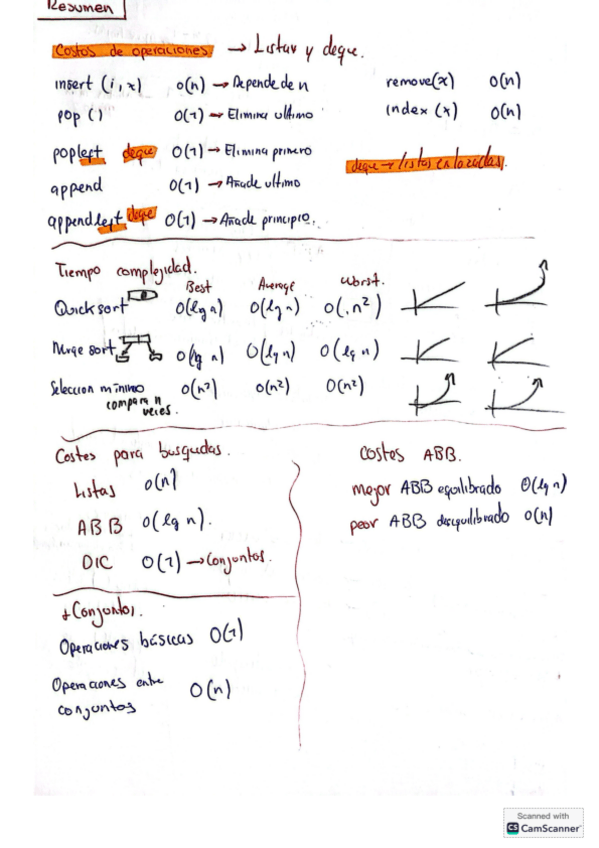 Resumen
Costos de operaciones → Listas y deque.
insert (i,x) O(n) → Depende de n remove(x) O(n)
pop () O(1) → Elimina ultimo index (x) O(n)
popleft deque O(1) → Elimina primero
deque → listas enlazadas.
append O(1) → Añade ultimo
appendleft deque O(1) → Añade principio.
Tiempo complejidad.
Best Average Worst.
Quicksort O(lg n) O(lg n) O(n²)
Merge sort O(lg n) O(lg n) O(lg n)
Seleccion minimo O(n²) O(n²) O(n²)
compara n
veces.
Costes para busquedas.
Listas O(n)
ABB O(lg n).
DIC O(1) → Conjuntos.
Costes ABB.
mejor ABB equilibrado O(lg n)
peor ABB desequilibrado O(n)
+Conjuntos.
Operaciones básicas O(1)
Operaciones entre O(n)
conjuntos
Scanned with
CS CamScanner